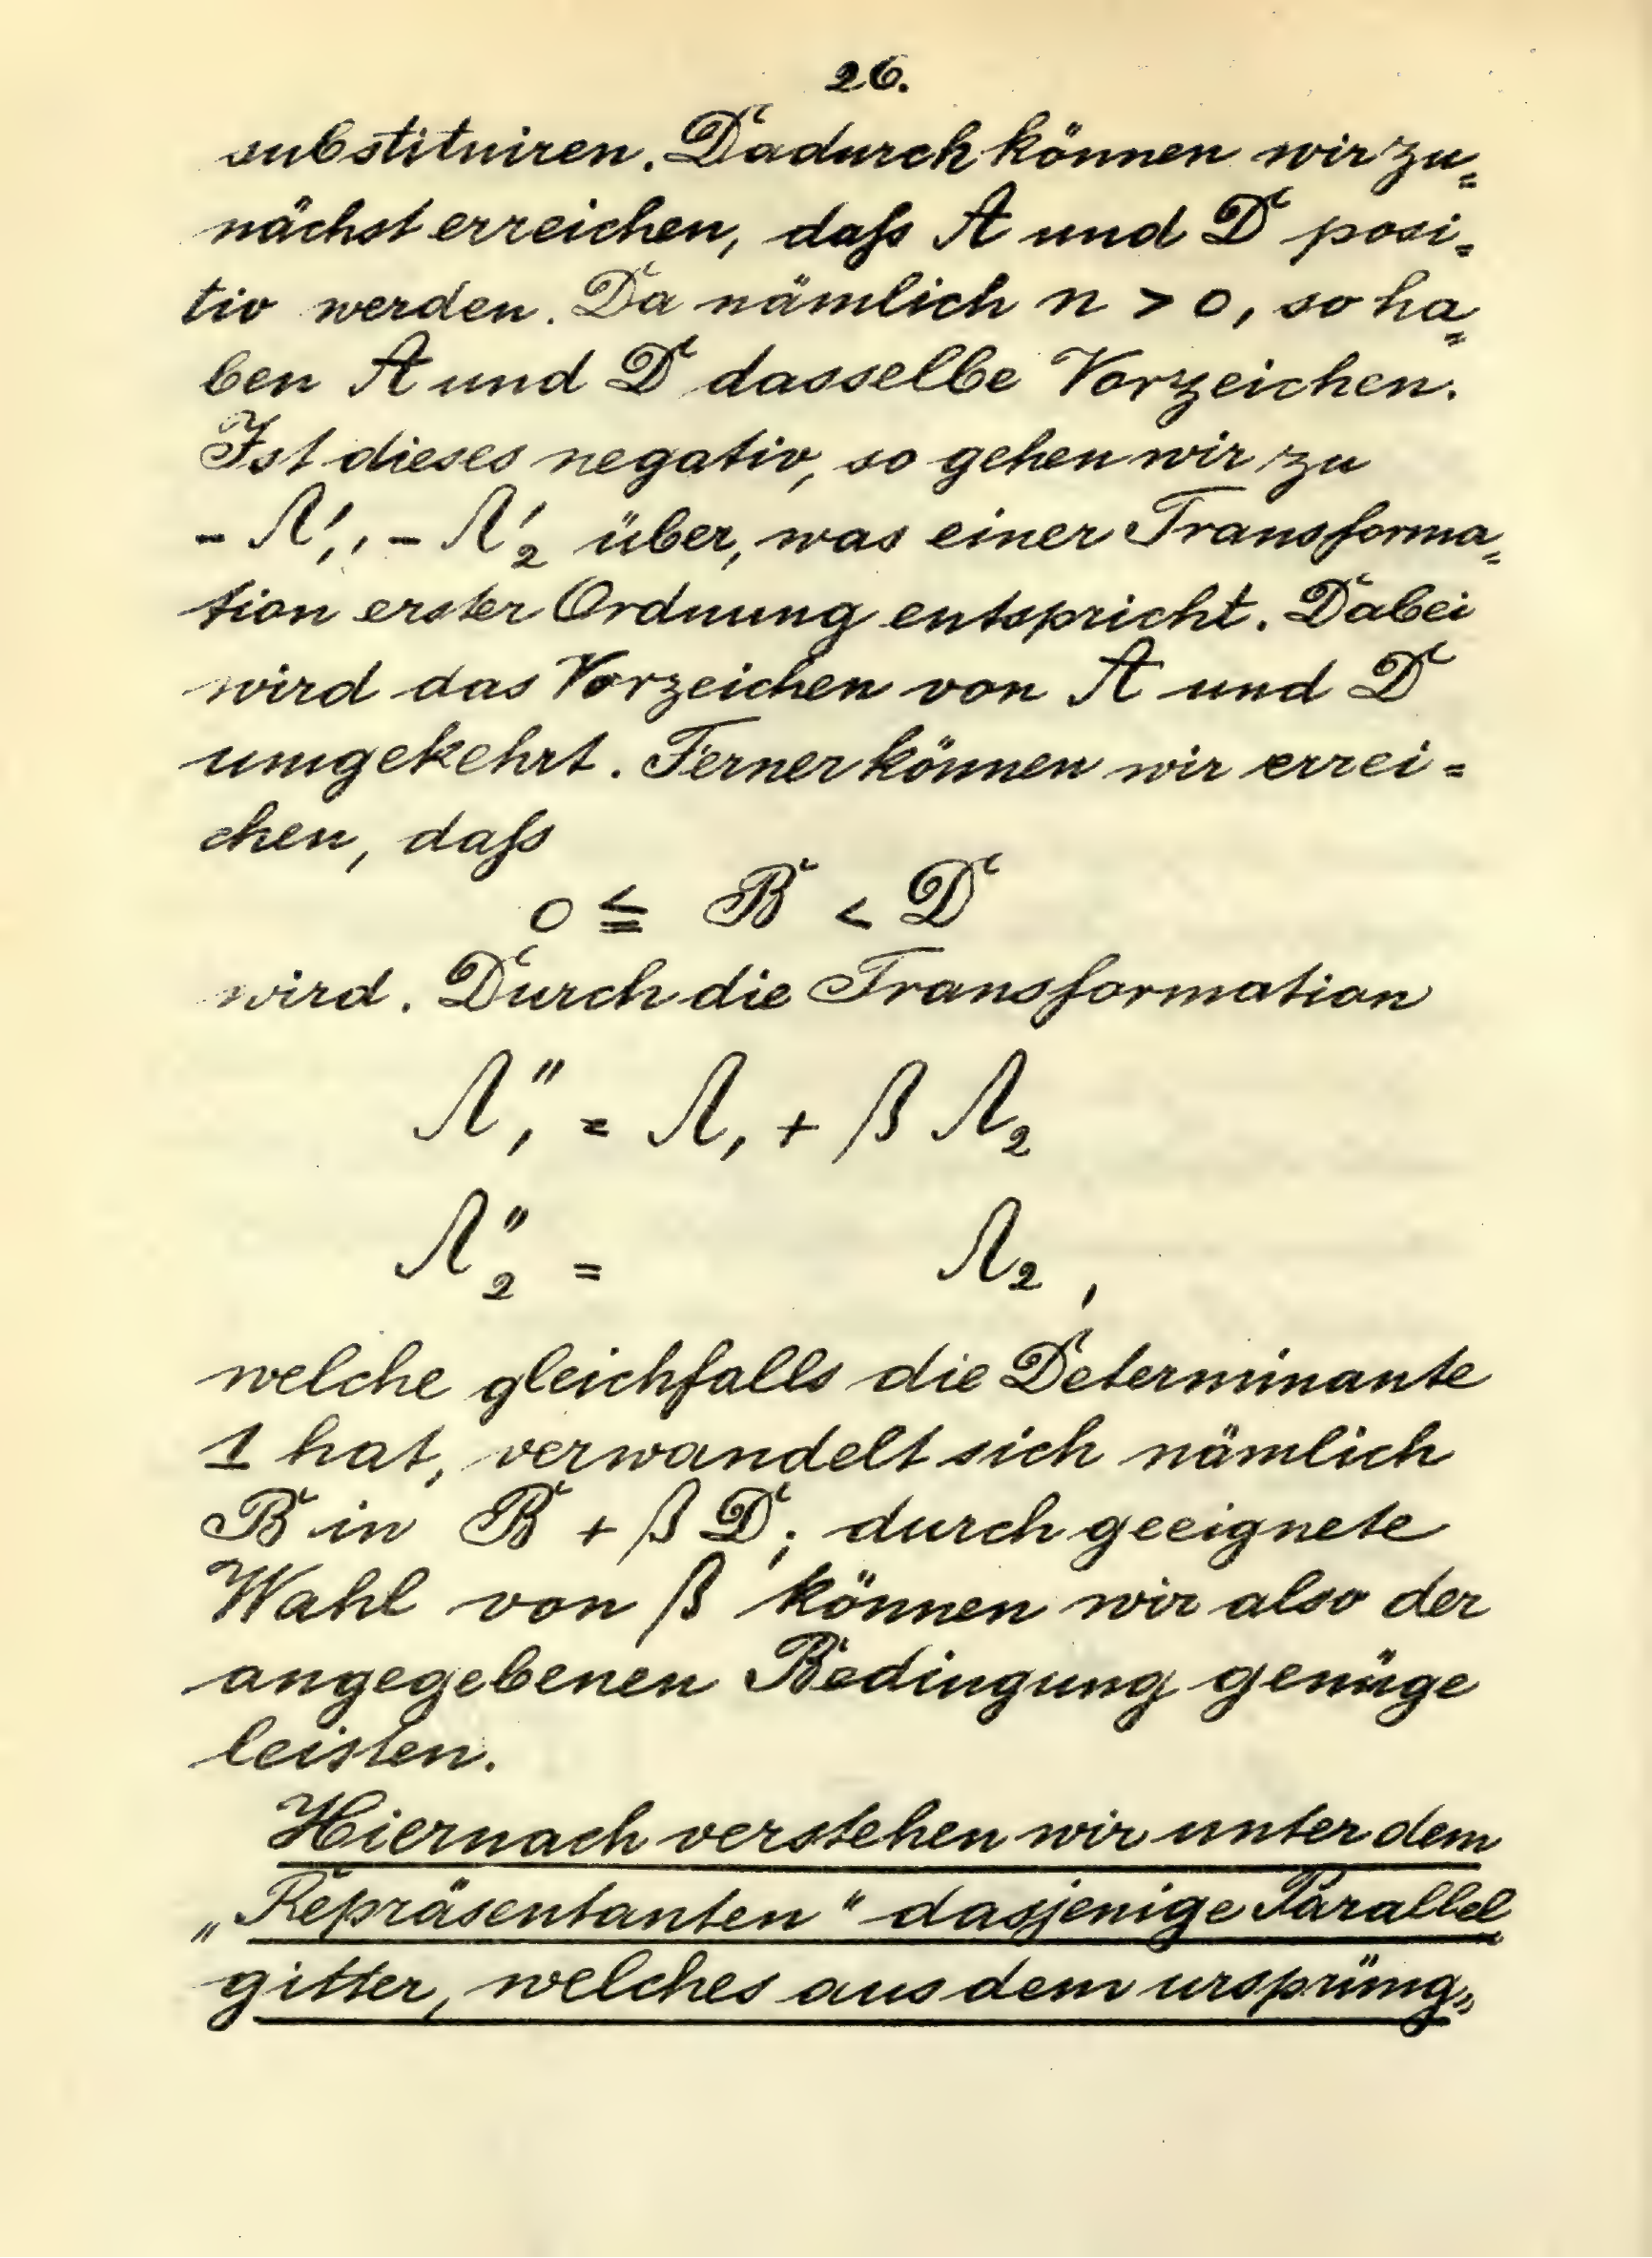 26.
substituiren. Dadurch können wir zu=
nächst erreichen, daſs A und D posi=
tiv werden. Da nämlich n > 0, so ha=
ben A und D dasselbe Vorzeichen.
Ist dieses negativ, so gehen wir zu
- Λ'₁, - Λ'₂ über, was einer Transforma=
tion erster Ordnung entspricht. Dabei
wird das Vorzeichen von A und D
umgekehrt. Ferner können wir errei=
chen, daſs
0 ≦ B < D
wird. Durch die Transformation
Λ''₁ = Λ₁ + β Λ₂
Λ''₂ = Λ₂,
welche gleichfalls die Determinante
1 hat, verwandelt sich nämlich
B in B + β D; durch geeignete
Wahl von β können wir also der
angegebenen Bedingung genüge
leisten.
Hiernach verstehen wir unter dem
„Repräsentanten" dasjenige Parallel=
gitter, welches aus dem ursprüng=